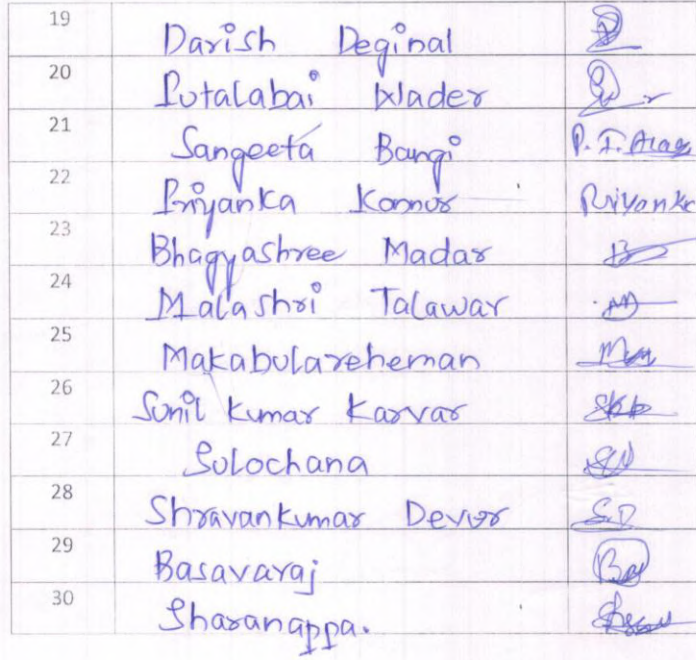 19 Darish Deginal
20 Putalabai Wader
21 Sangeeta Bangi P. I. 
22 Priyanka Konnur Priyanka
23 Bhagyashree Madar
24 Malashri Talawar
25 Makabulareheman
26 Sunil Kumar Karvar
27 Sulochana
28 Shravankumar Devur S.D
29 Basavaraj
30 Sharanappa.